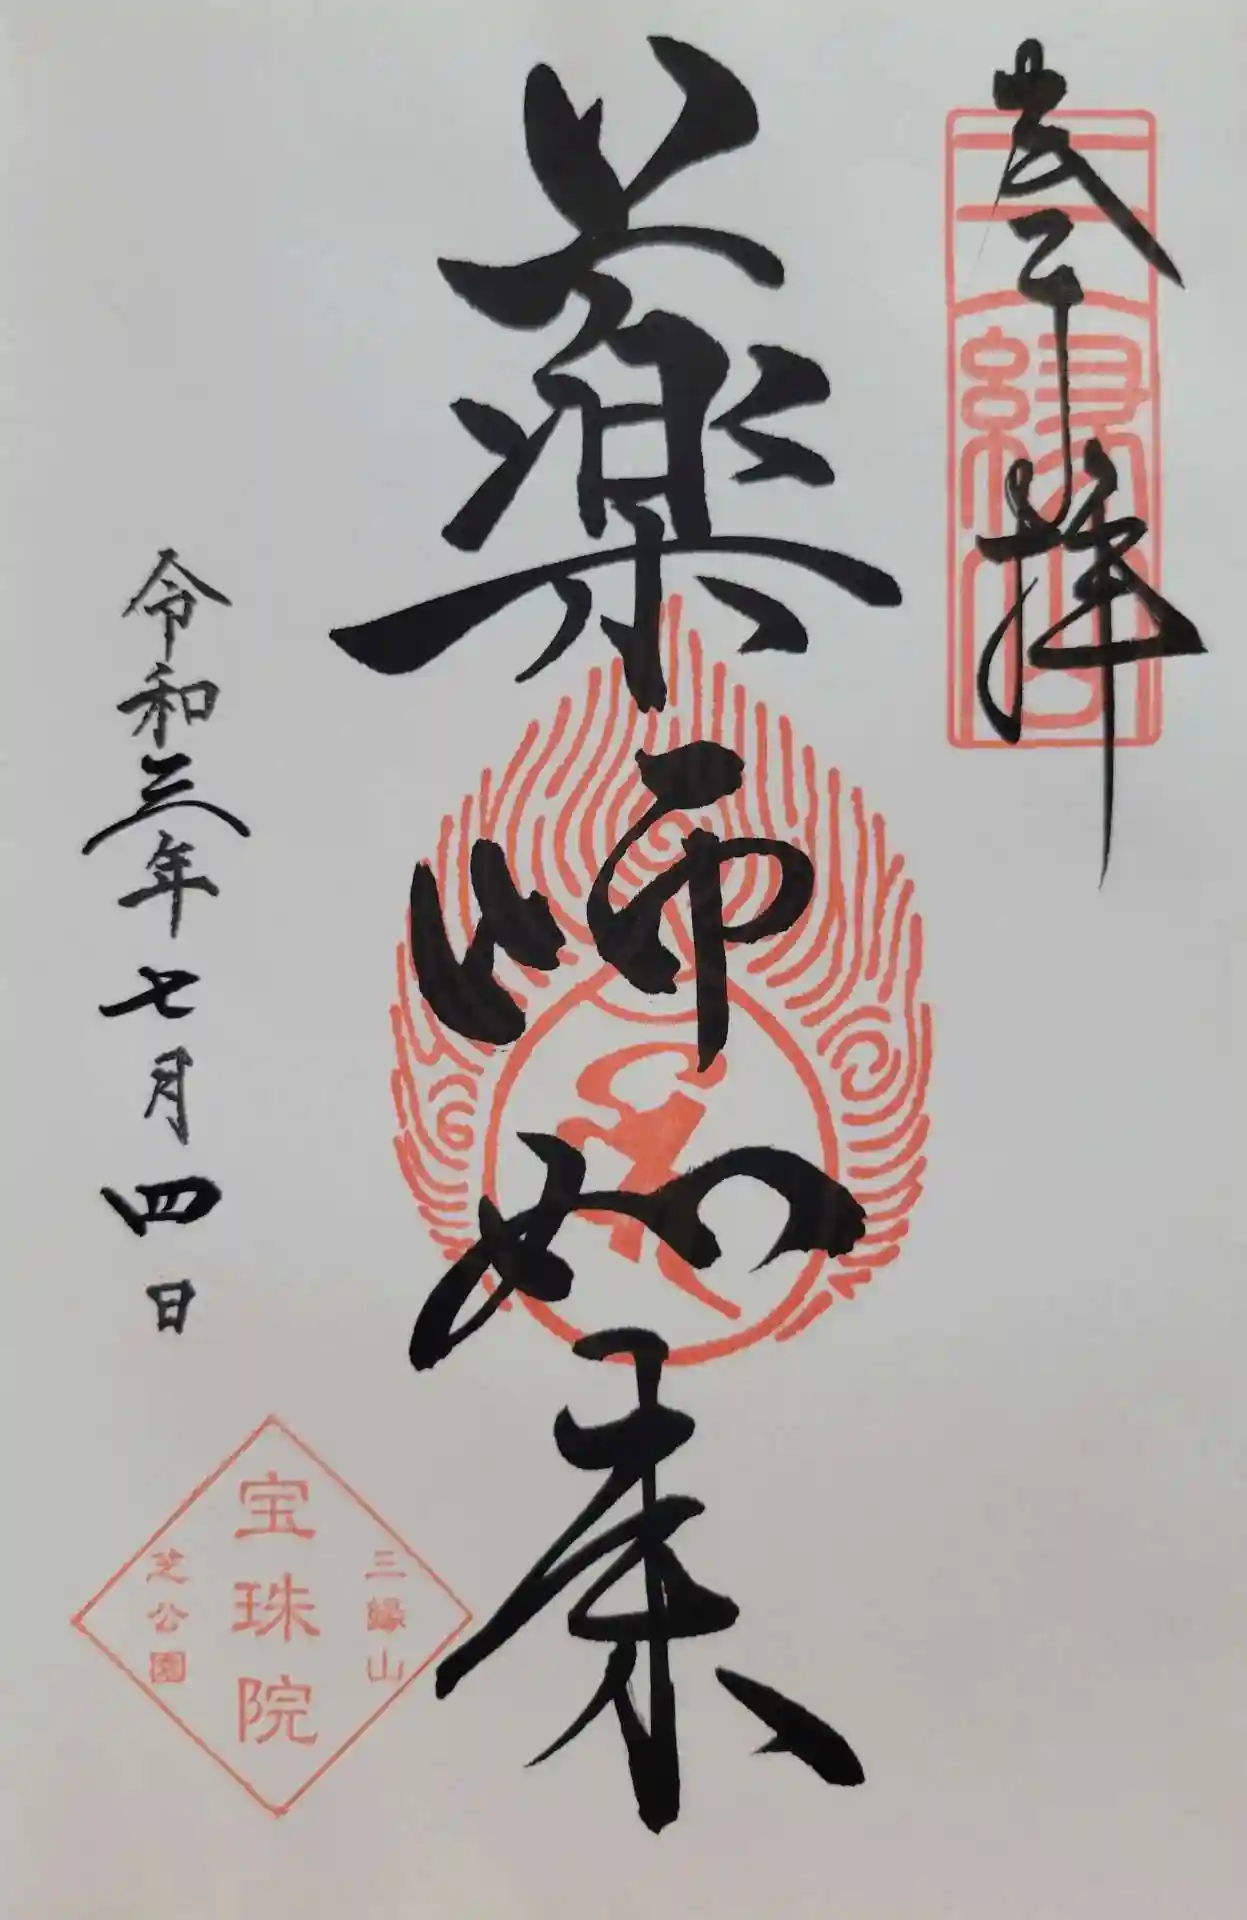 奉拝
三縁山
薬師如来
令和三年七月四日
三縁山
宝珠院
芝公園